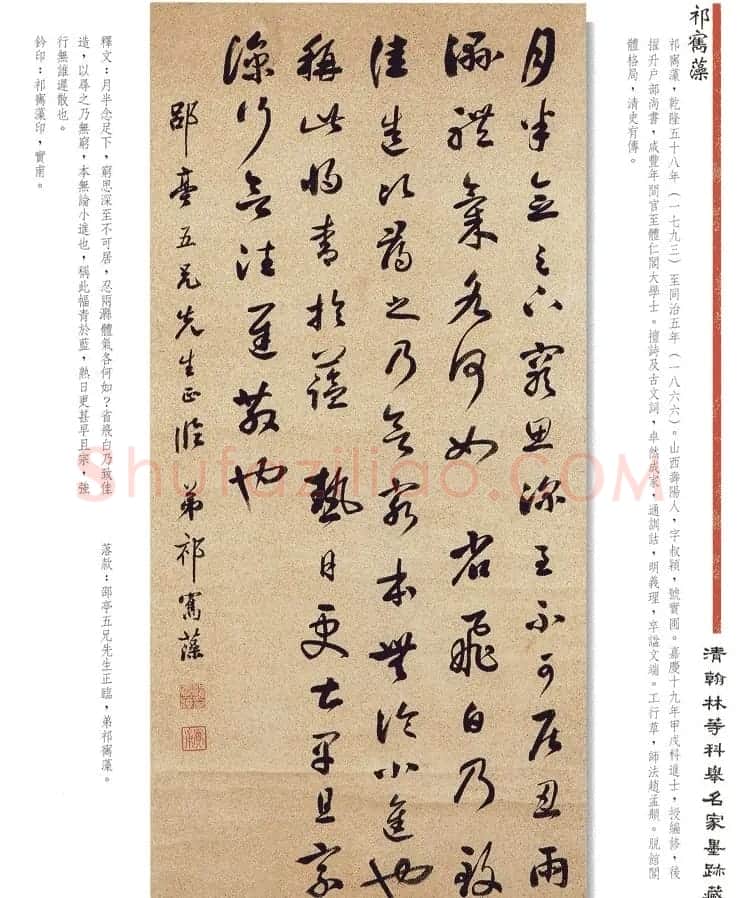 祁寯藻
祁寯藻，乾隆五十八年（一七九三）至同治五年（一八六六）。山西壽陽人，字叔穎，號實圃。嘉慶十九年甲戌科進士，授編修，後
擢升戶部尚書，咸豐年間官至體仁閣大學士。擅詩及古文詞，卓然成家，通訓詁，明義理，卒謚文端。工行草，師法趙孟頫。脫館閣
體格局，清史有傳。
清翰林等科舉名家墨跡藏
月半念足下窮思深至不可居忍雨
濕體氣各何如省飛白乃致
佳造次尋之乃無窮本無論小進也
稱此將青於藍熱日更甚早且
深行無
邵亭五兄先生正臨 弟祁寯藻
釋文：月半念足下，窮思深至不可居，忍雨濕體氣各何如？省飛白乃致佳
造，以尋之乃無窮，本無論小進也，稱此幅青於藍，熱日更甚早且宗，強
行無誰遲散也。
落款：邵亭五兄先生正臨，弟祁寯藻。
鈐印：祁寯藻印，實甫。
Shufaziliao.COM